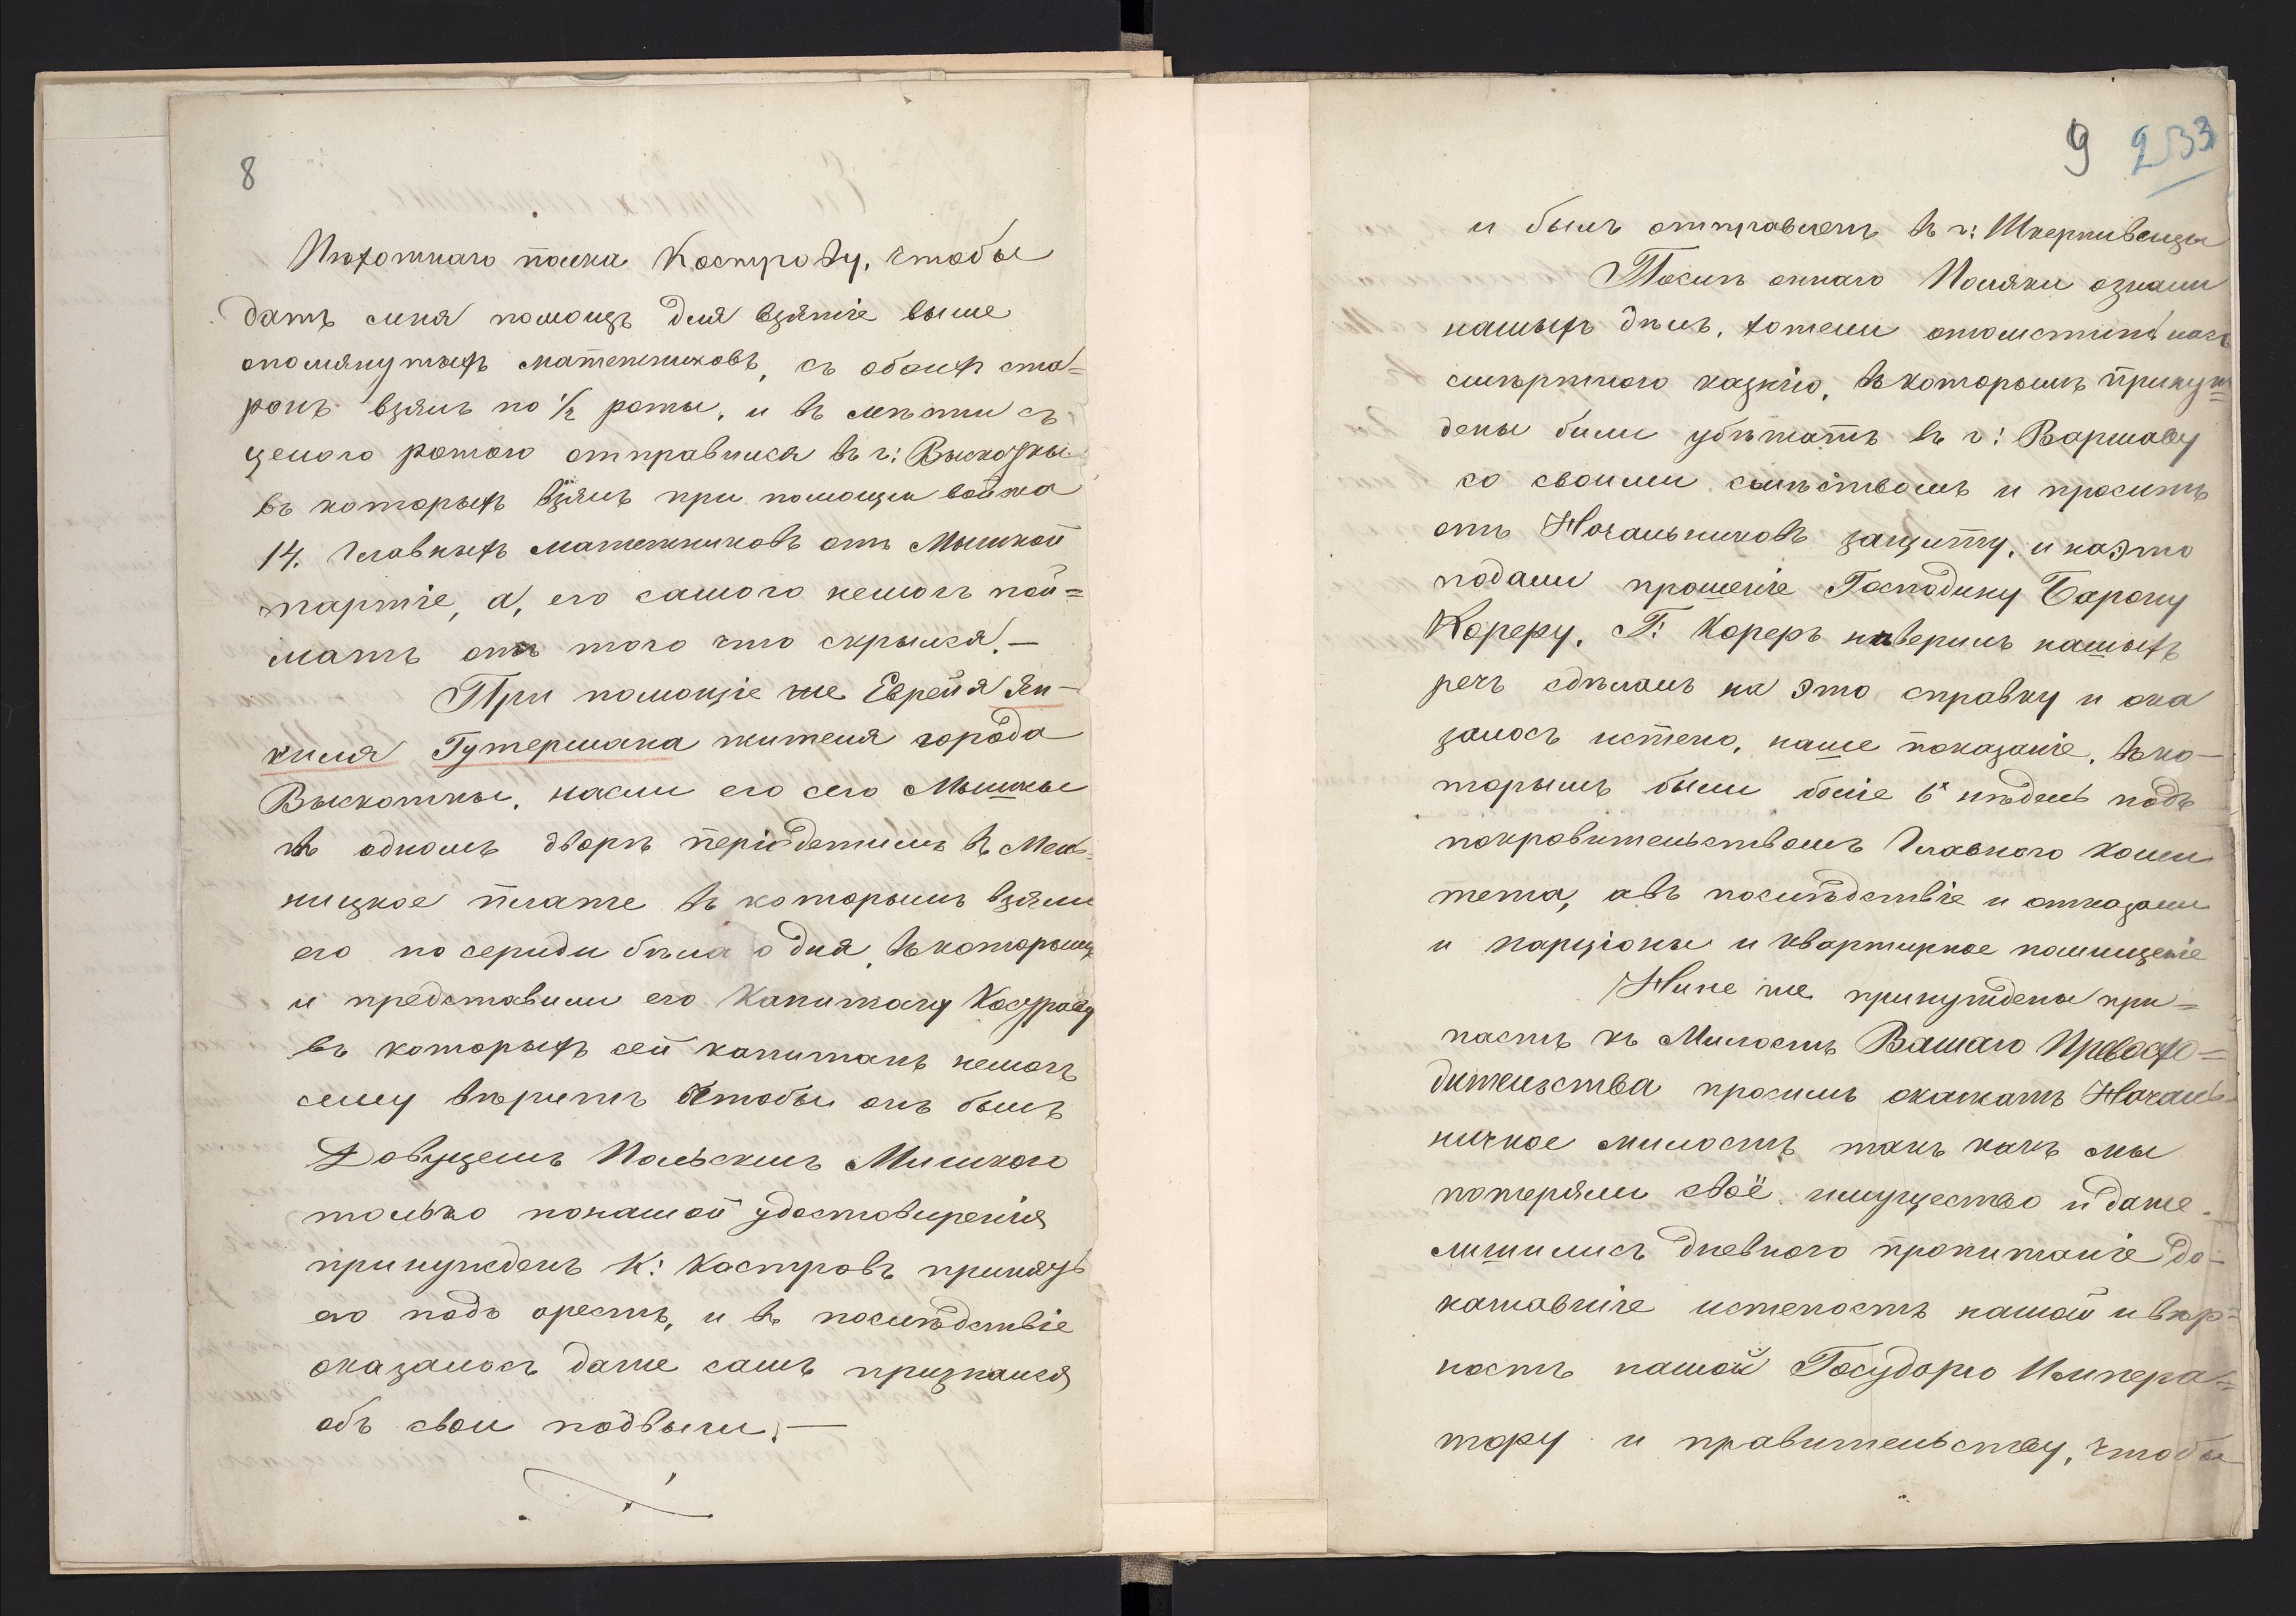 8
Пѣхотнаго полка Кострову, чтобы
дать мня помощь для взятіе выше
опомянутыхъ матежниковъ, съ обоихъ ста=
ронъ взялъ по ½ роты, и въ мѣсти съ
целого ротого отправился въ г: Выскотки
въ которыхъ взялъ при помощи войжа
14. Главныхъ матежниковъ отъ Мышкой
партіе, а, его самого немогъ пой=
мать отъ того что скрылся. —
При помощіе же Еврейя Ян-
киля Гутермана жителя города
Выскотки, насли его сего Мышкы
въ одномъ дворѣ періодетимъ въ Мель-
ницкое плате въ которымъ взяли
его по середи бѣла о дня, въ которымъ
и представили его Капитану Кострову
въ которыхъ сей капитанъ немогъ
сему вѣрить чтобы онъ былъ
Довуцемъ Польскимъ Мишкого
только понашой удостовиренія
принужденъ К: Костровъ принять
его подъ орестъ, и въ послѣдствіе
оказалось даже самъ признался
объ свои подвыги. —
9 233
и былъ отправленъ въ г: Шкернивецы
Послѣ оннаго Поляки ознали
нашыхъ дѣлъ, хотели отомстить насъ
смѣртного казнію, въ которымъ принуж=
дены били убѣжать въ г: Варшаву
со своими симѣствомъ и просить
отъ Началниковъ защиту, и наэто
подали прошеніе Господину Барону
Кореру. Г: Кореръ наверилъ нашыхъ
речъ сдѣлалъ на это справку и ока
залось истено, наше показаніе, въко-
торымъ были боліе 6х нѣдель подъ
покровительствомъ Главного коми
тета, авъ послѣдствіе и отказали
и парціоны и квартирное помищеніе
Нине же принуждены при=
пасть къ Милость Вашаго Превосхо=
дительства просимъ окажать Началь-
ничкое милость такъ какъ мы
потеряли своё имущество и даже
лишились дневного пропитаніе до-
кашавшіе истеность нашой и вѣр=
ность нашой Государю Импера=
тору и правительству, чтобы